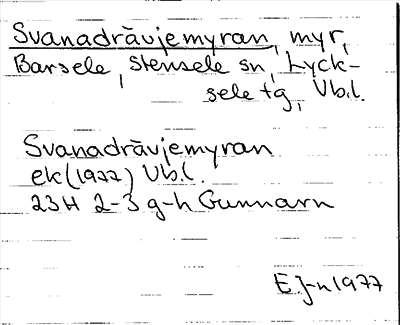 Svanadråvjemyran, myr,
Barsele, Stensele sn, Lyck-
sele tg, Vb.l.
Svanadråvjemyran
ek (1977) Vb.l.
23H 2-3 g-h Gunnarn
EJ-n 1977